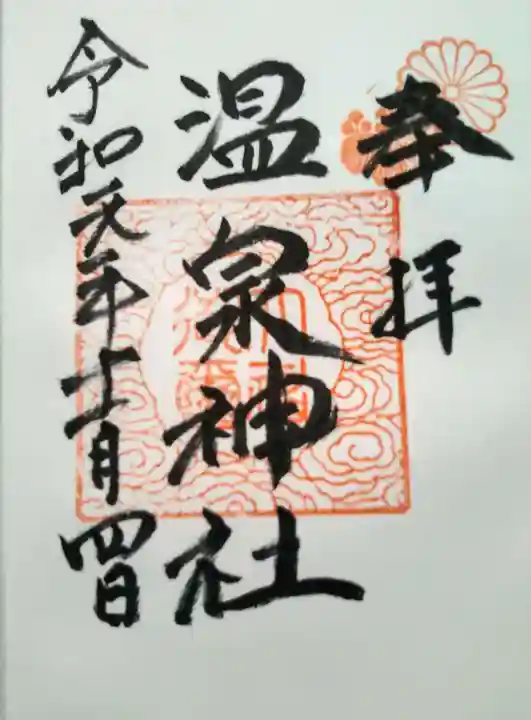 奉拝
温泉神社
令和元年十一月四日